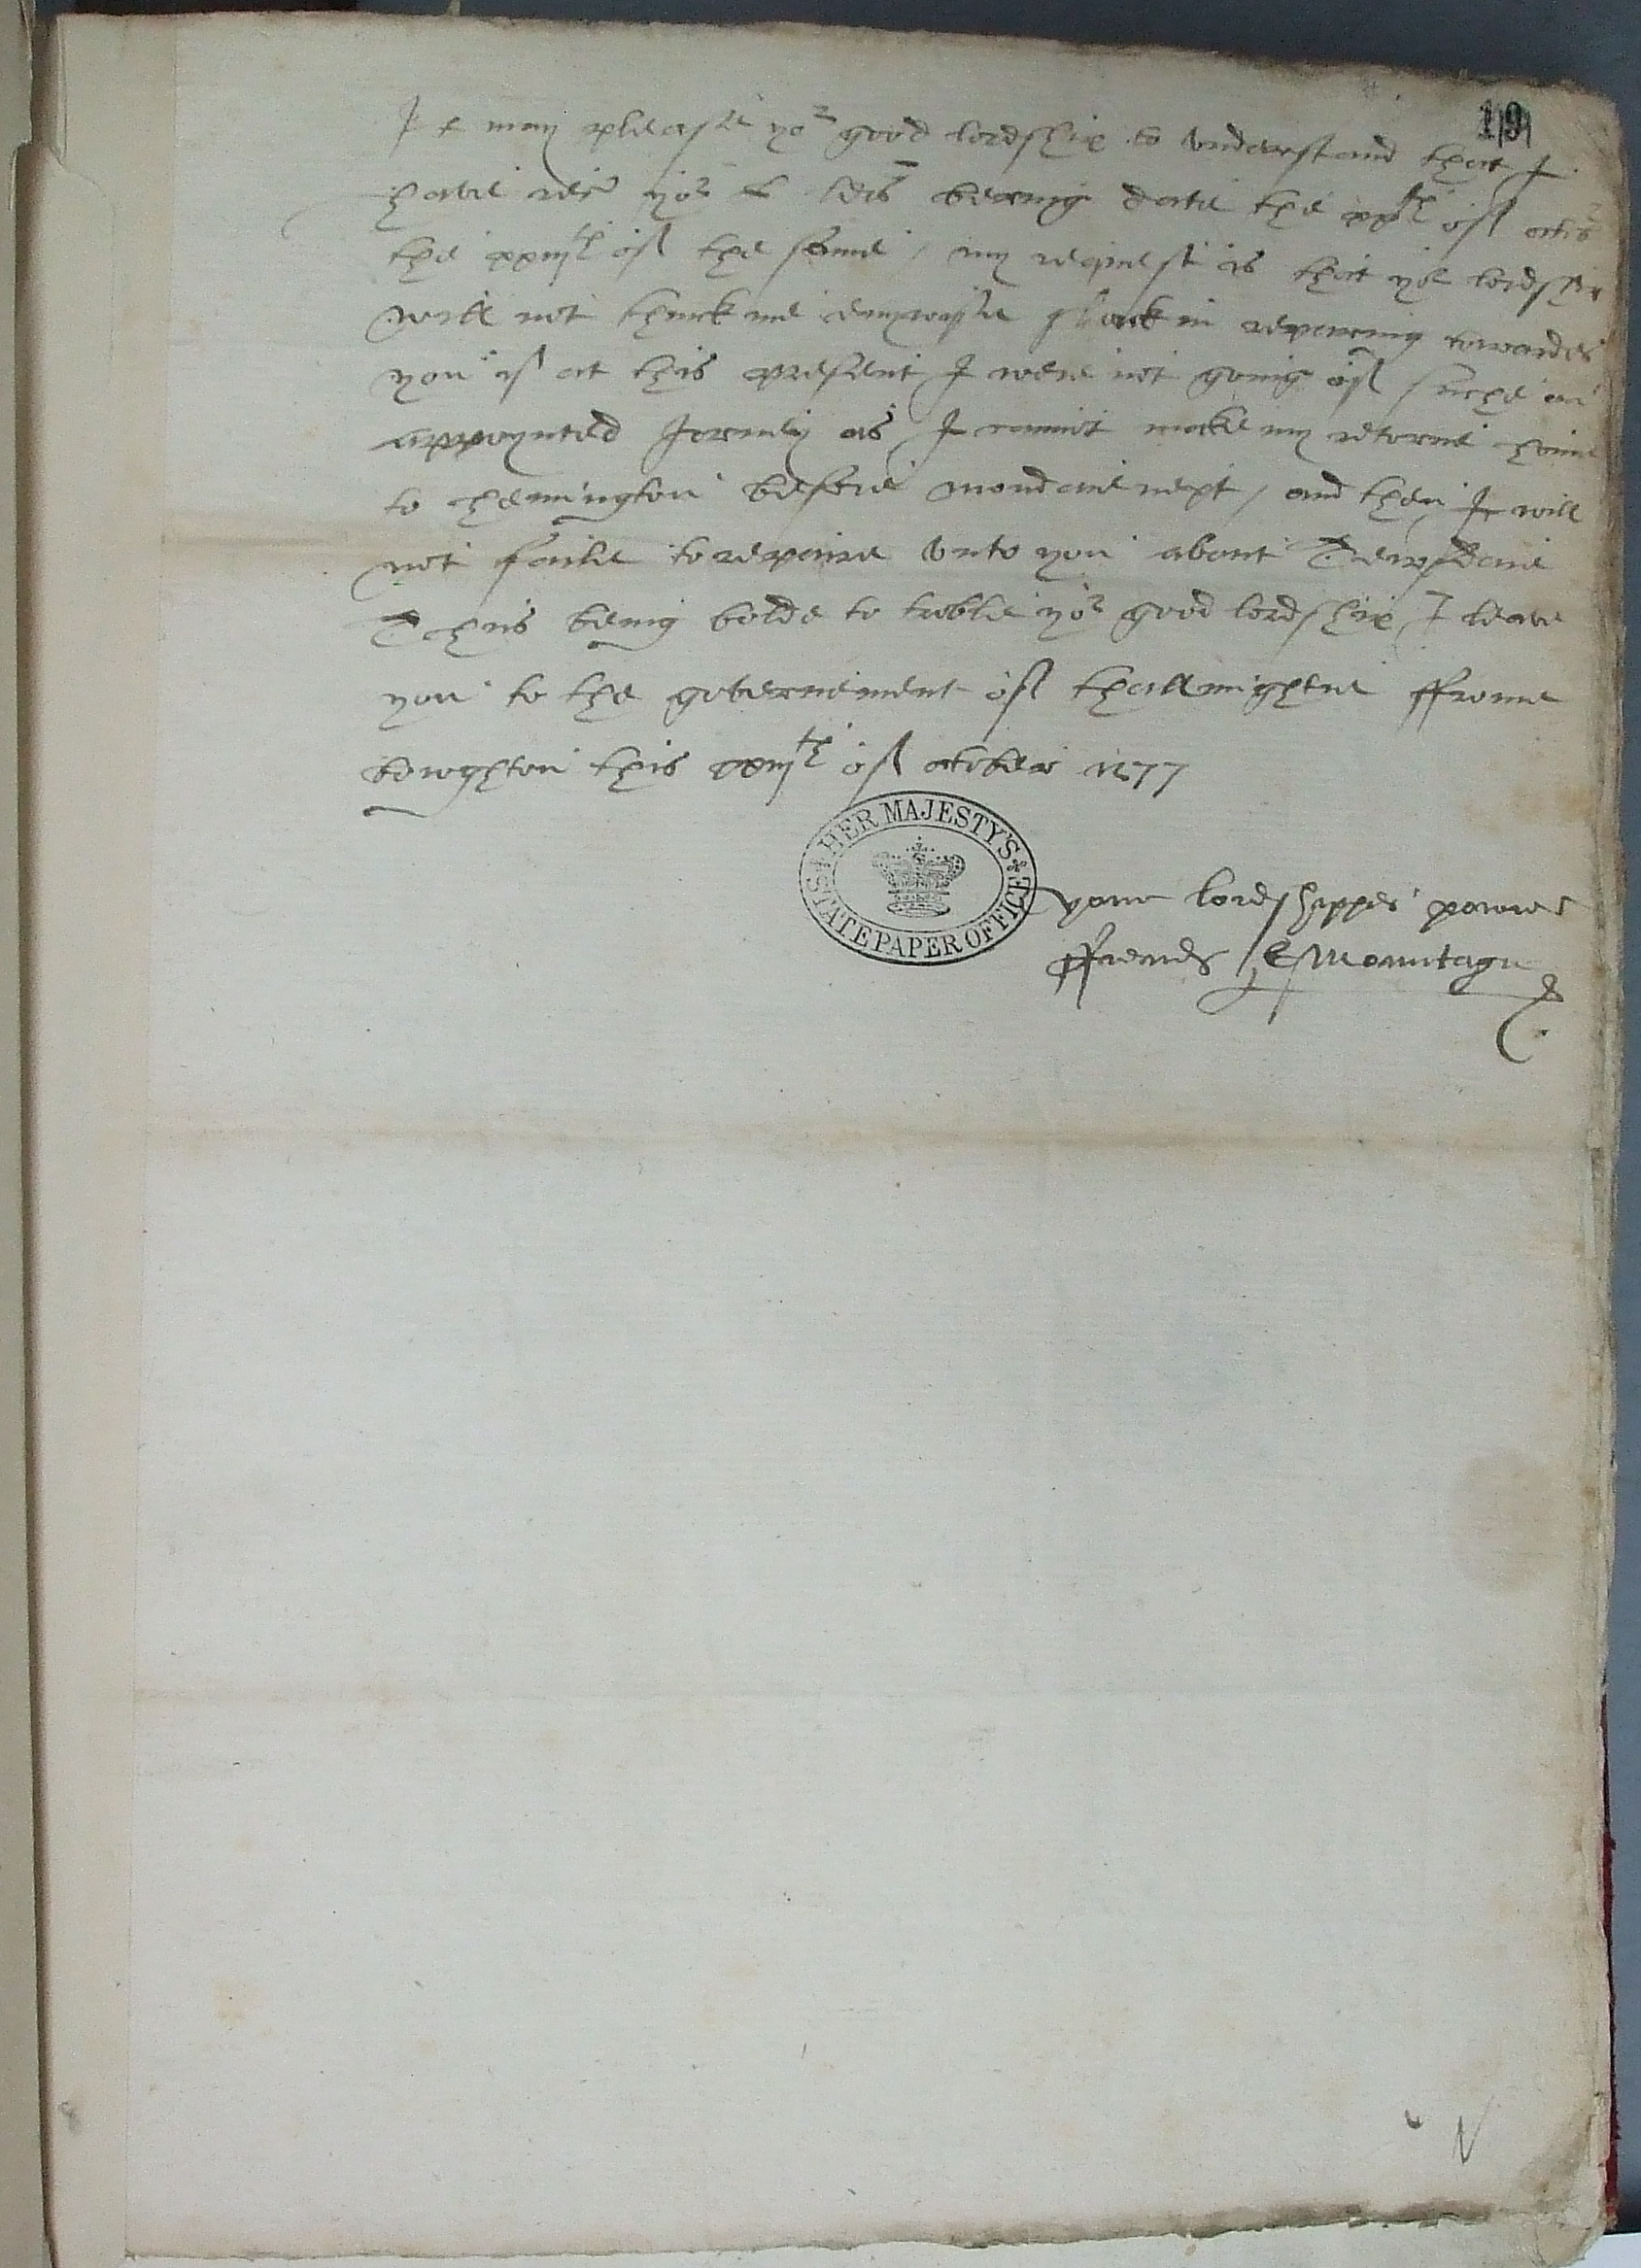 19
It may please yor good lordship to vnderstand that I
have rec yor L lres bering date the xxth of octobr
the xxiijth of the same / my request is that yor lordship
will not thinck me enywayse slack in reparing towardes
you if at this present I were not going of suche an
appoynted Jorney as I cannot make my retorne home
to hemington before mondaie next / and then I will
not faile to repaire vnto you about Tewsdaie
Thus being bolde to troble yor good lordship I leave
you to the governement of thallmightie ffrome
bowghton this xxiijth of october 1577
HER MAJESTY'S STATE PAPER OFFICE
your lordshippes power
ffrend E Mountagu